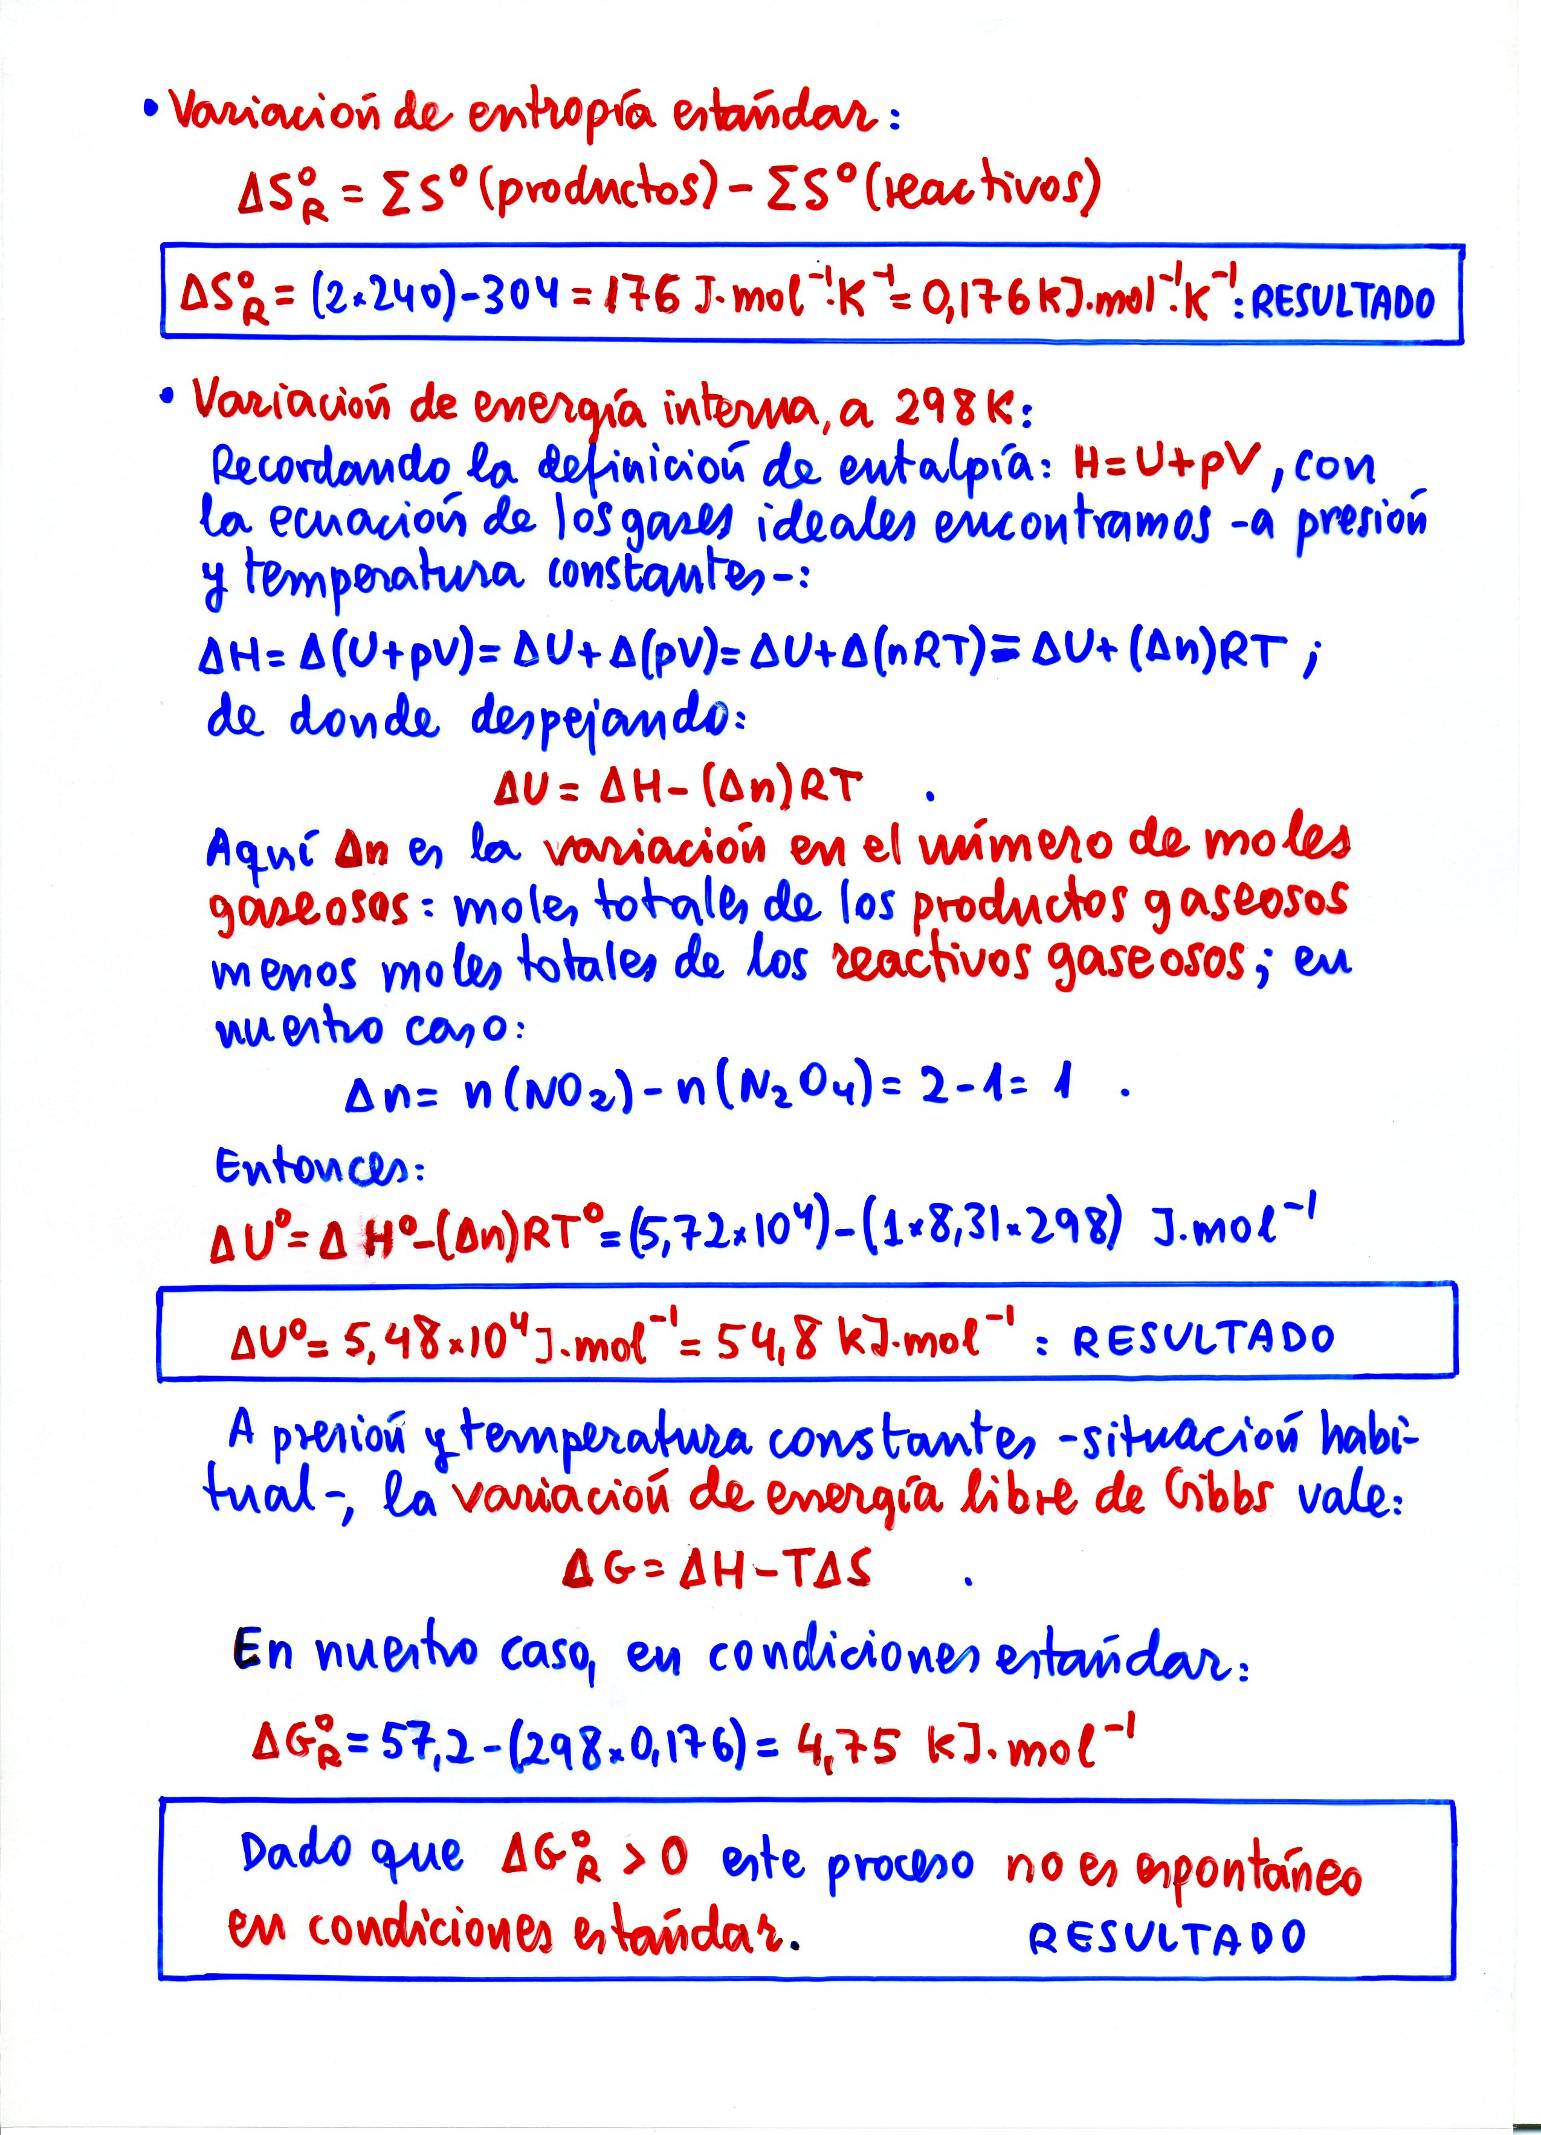 • Variación de entropía estándar:
ΔS°R = ΣS°(productos) - ΣS°(reactivos)
ΔS°R = (2×240)-304 = 176 J·mol⁻¹·K⁻¹ = 0,176 kJ·mol⁻¹·K⁻¹: RESULTADO
• Variación de energía interna, a 298K:
Recordando la definición de entalpía: H=U+pV, con
la ecuación de los gases ideales encontramos -a presión
y temperatura constantes-:
ΔH = Δ(U+pV) = ΔU+Δ(pV) = ΔU+Δ(nRT) = ΔU+(Δn)RT ;
de donde despejando:
ΔU = ΔH-(Δn)RT .
Aquí Δn es la variación en el número de moles
gaseosos: moles totales de los productos gaseosos
menos moles totales de los reactivos gaseosos; en
nuestro caso:
Δn = n(NO₂)-n(N₂O₄) = 2-1 = 1 .
Entonces:
ΔU° = ΔH°-(Δn)RT° = (5,72×10⁴)-(1×8,31×298) J·mol⁻¹
ΔU° = 5,48×10⁴ J·mol⁻¹ = 54,8 kJ·mol⁻¹ : RESULTADO
A presión y temperatura constantes -situación habi-
tual-, la variación de energía libre de Gibbs vale:
ΔG = ΔH-TΔS .
En nuestro caso, en condiciones estándar:
ΔG°R = 57,2-(298×0,176) = 4,75 kJ·mol⁻¹
Dado que ΔG°R > 0 este proceso no es espontáneo
en condiciones estándar. RESULTADO